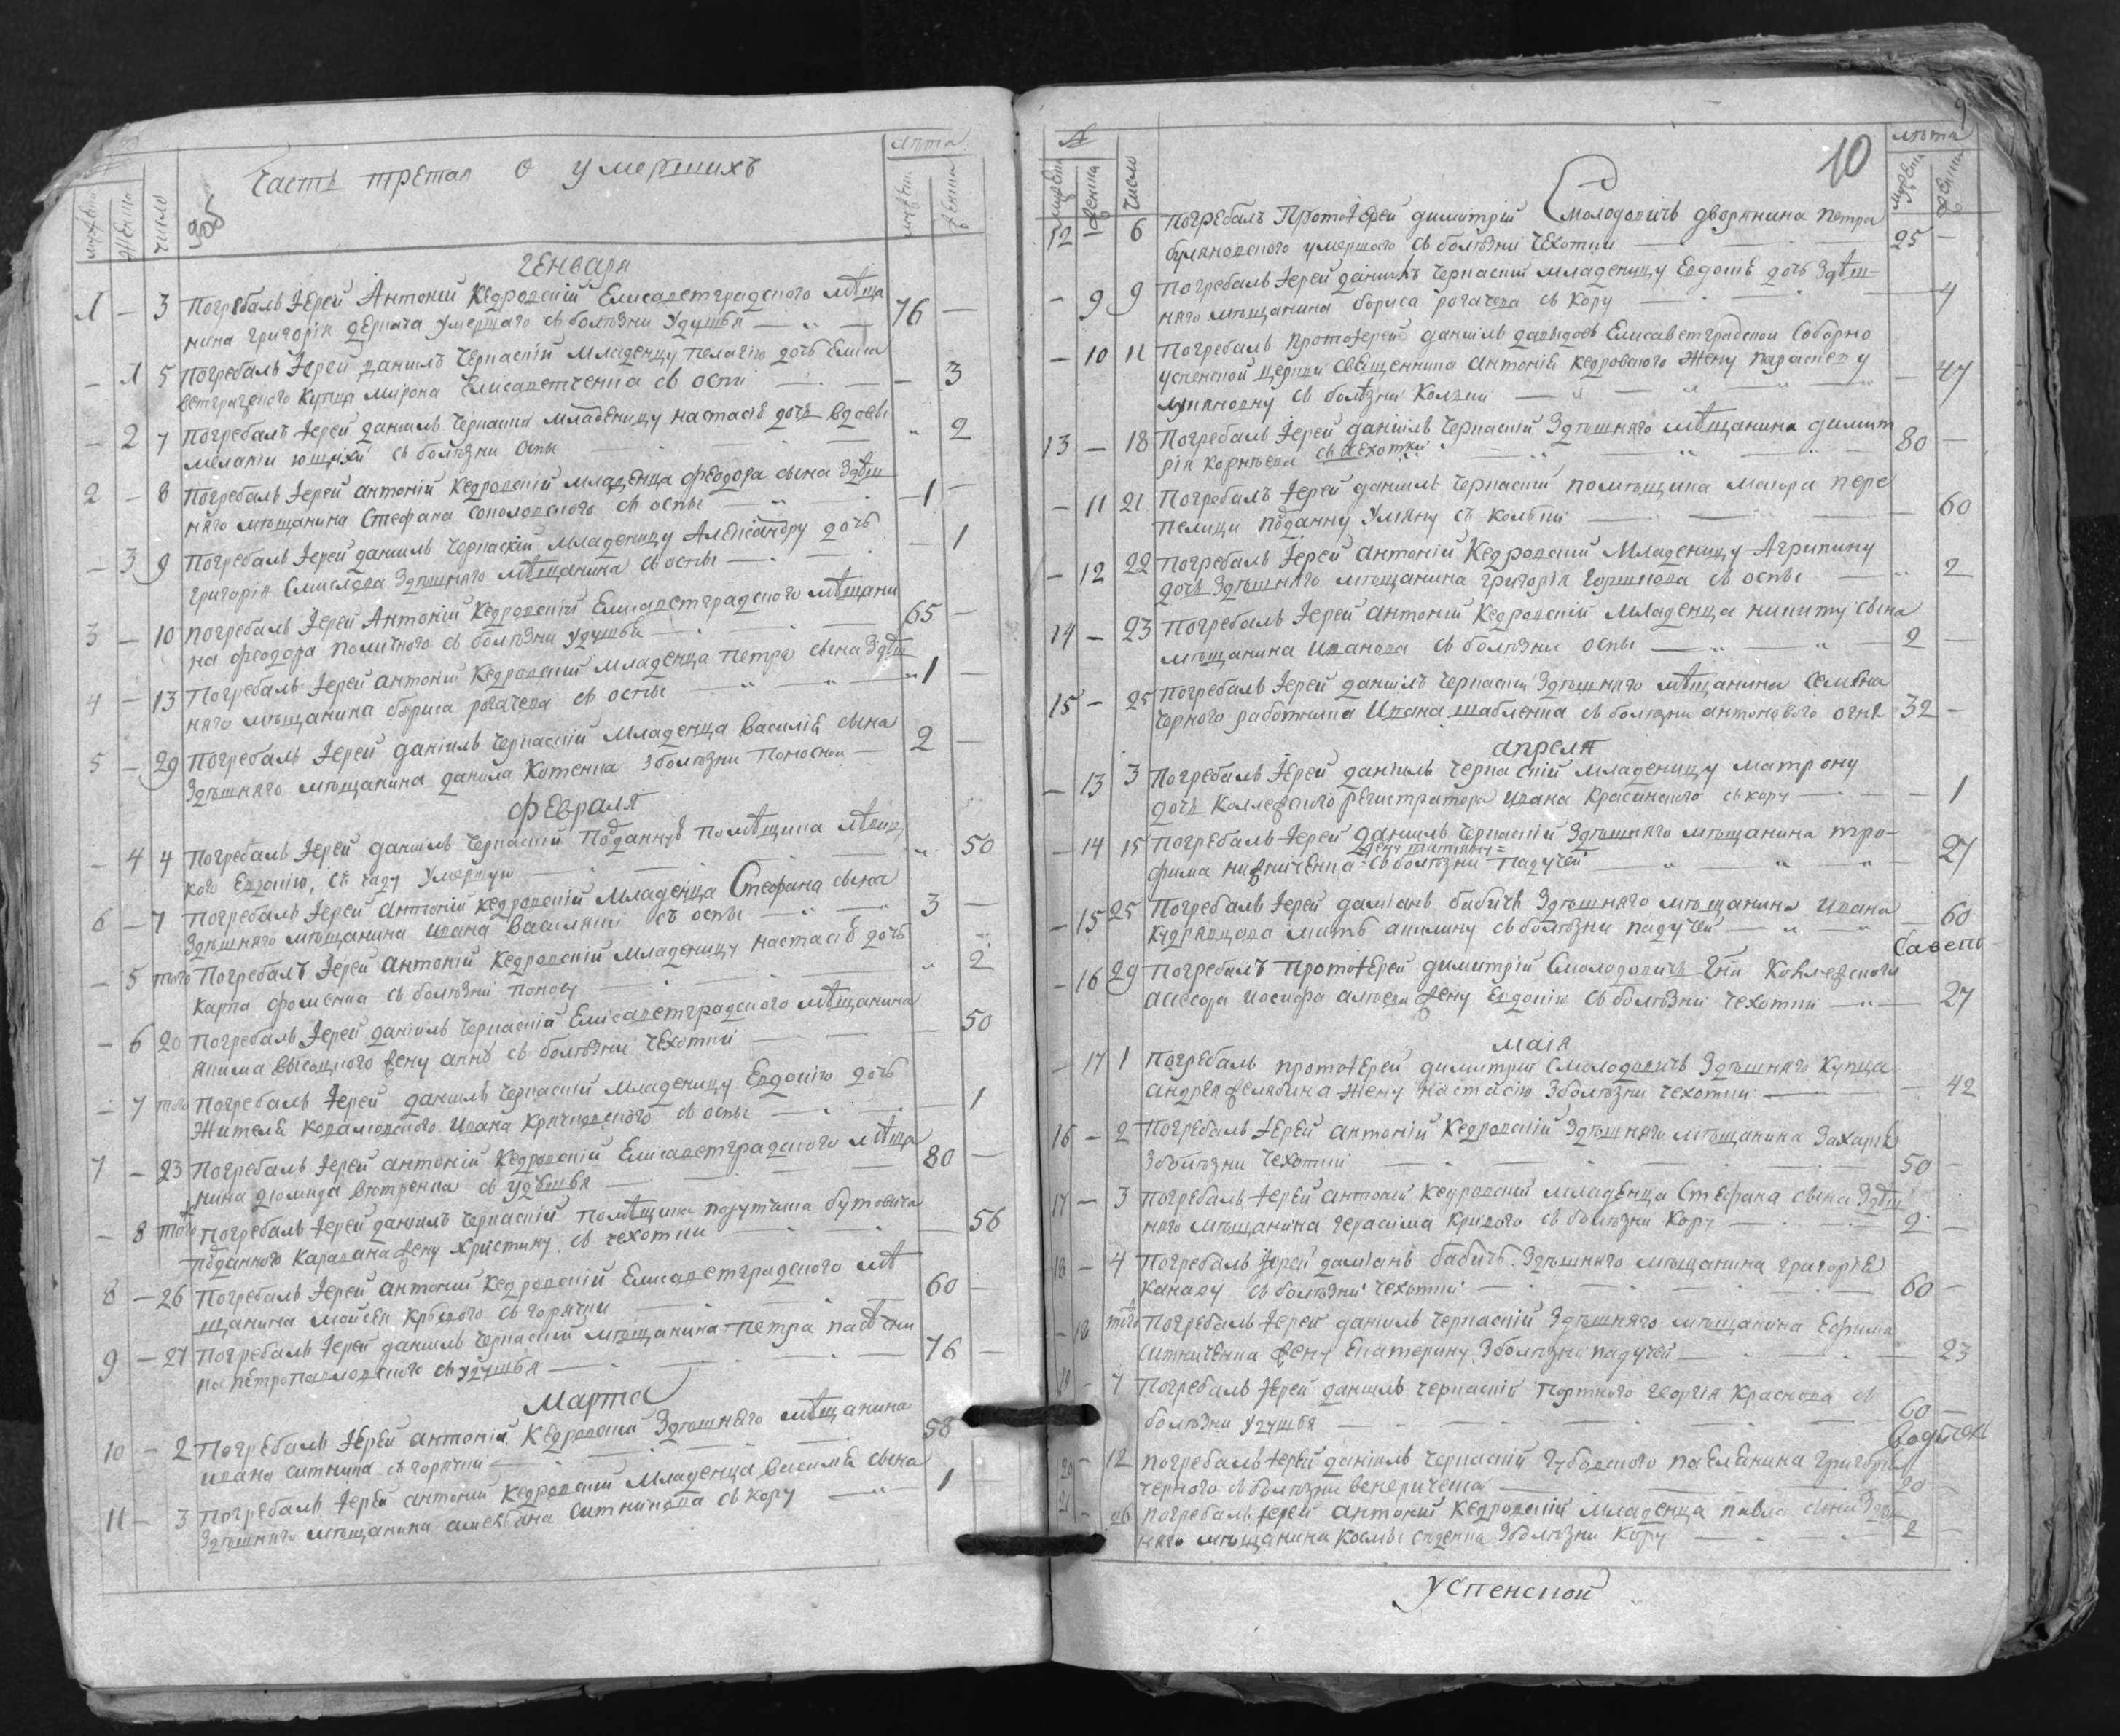 Часть третая о умершихъ
лѣта
число
Генваря
1 – 3 Погребалъ Іерей Антоній Кедровскій Елисаветградского мѣща 76 –
нина Григорія умершаго съ болѣзни удушья
– 1 5 Погребалъ Іерей Даніилъ Черпаскій младенцу Пелагію дочь Елиса – 3
ветградского купца Мирона Елисаветченка съ оспи
– 2 7 Погребалъ Іерей Даніилъ Черпаскій младеницу Настасію дочь вдовы 2
Меланіи съ болѣзни оспы
2 – 8 Погребалъ Іерей Антоній Кедровскій младенца Феодора сына здѣш 1 –
няго мѣщанина Стефана Соколовского съ оспы
– 3 9 Погребалъ Іерей Даніилъ Черпаскій младеницу Александру дочь – 1
Григорія Смислова здѣшняго мѣщанина съ оспы
3 – 10 Погребалъ Іерей Антоній Кедровскій Елисаветградского мѣщани 65 –
на Феодора съ болѣзни удушья
4 – 13 Погребалъ Іерей Антоній Кедровскій младенца Петра сына здѣш 1 –
няго мѣщанина Бориса Рогачева съ оспы
5 – 29 Погребалъ Іерей Даніилъ Черпаскій младенца Василія сына 2 –
здѣшняго мѣщанина Данила Котенка зболѣзни поносной
Февраля
– 4 4 Погребалъ Іерей Даніилъ Черпаскій помѣщика 50
кого Евдокію, съ чаду умершую
6 – 7 Погребалъ Іерей Антоній Кедровскій младенца Стефана сына 3 –
здѣшняго мѣщанина Ивана съ оспы
– 5 того Погребалъ Іерей Антоній Кедровскій младеницу Настасію дочь 2
Карпа Фоменка съ болѣзни поносу
– 6 20 Погребалъ Іерей Даніилъ Черпаскій Елисаветградского мѣщанина – 50
Якима Высоцкого жену Анну съ болѣзни чехотки
– 7 того Погребалъ Іерей Даніилъ Черпаскій младеницу Евдокію дочь – 1
жителя Ивана съ оспы
7 – 23 Погребалъ Іерей Антоній Кедровскій Елисаветградского мѣща 80 –
нина съ удушья
– 8 того Погребалъ Іерей Даніилъ Черпаскій помѣщика порутчика Бутовича – 56
подданного Каравана жену Христину съ чехотки
8 – 26 Погребалъ Іерей Антоній Кедровскій Елисаветградского мѣ 60 –
щанина Моисея съ горячки
9 – 27 Погребалъ Іерей Даніилъ Черпаскій мѣщанина Петра 76 –
съ удушья
Марта
10 – 2 Погребалъ Іерей Антоній Кедровскій здѣшняго мѣщанина 58
Ивана Ситника съ горячки
11 – 3 Погребалъ Іерей Антоній Кедровскій младенца Василія сына 1
здѣшняго мѣщанина Ситникова съ кору
10
№ лѣта
число
12 – 6 Погребалъ Протоіерей Димитрій Смолодовичъ дворянина Петра 25 –
умершого съ болѣзни чехотки
– 9 9 Погребалъ Іерей Даніилъ Черпаскій младеницу Евдокію дочь здѣш– 4
няго мѣщанина Бориса Рогачева съ кору
– 10 11 Погребалъ Протоіерей Даніилъ Давыдовъ Елисаветградской соборно
Успенской церкви священника Антонія Кедровского жену Параскеву – 47
съ болѣзни кольки
13 – 18 Погребалъ Іерей Даніилъ Черпаскій здѣшняго мѣщанина Димит 80 –
рія Корнѣева съ чехотки
– 11 21 Погребалъ Іерей Даніилъ Черпаскій помѣщика маіора Пере – 60
пелици подданну Улияну съ кольки
– 12 22 Погребалъ Іерей Антоній Кедровскій младеницу Агрипину – 2
дочь здѣшняго мѣщанина Григорія Горшкова съ оспы
14 – 23 Погребалъ Іерей Антоній Кедровскій младенца Никиту сына
мѣщанина Иванова съ болѣзни оспы 2 –
15 – 25 Погребалъ Іерей Даніилъ Черпаскій здѣшняго мѣщанина Семена
Черного работника Ивана Шабленка съ болѣзни антонового огня 32 –
Апреля
– 13 3 Погребалъ Іерей Даніилъ Черпаскій младеницу Матрону
дочь коллежского регистратора Ивана Красинского съ кору – 1
– 14 15 Погребалъ Іерей Даніилъ Черпаскій здѣшняго мѣщанина Тро–
жену Татияну
фима съ болѣзни падучей 27
– 15 25 Погребалъ Іерей Даміанъ Бабичъ здѣшняго мѣщанина Ивана
Кудрявцова мать Акилину съ болѣзни падучей – 60
– 16 29 Погребалъ Протоіерей Димитрій Смолодовичъ Гна коллежского
асесора Иосифа жену Евдокію съ болѣзни чехотки 27
Маія
– 17 1 Погребалъ Протоіерей Димитрій Смолодовичъ здѣшняго купца
Андрея Желябина жену Настасію зболѣзни чехотки – 42
16 – 2 Погребалъ Іерей Антоній Кедровскій здѣшняго мѣщанина Захарія
зболѣзни чехотки 50 –
17 – 3 Погребалъ Іерей Антоній Кедровскій младенца Стефана сына здѣш
няго мѣщанина Герасима Кривого съ болѣзни кору 2 –
18 – 4 Погребалъ Іерей Даміанъ Бабичъ здѣшняго мѣщанина Григорія
Канаву съ болѣзни чехотки 60 –
– 18 того Погребалъ Іерей Даніилъ Черпаскій здѣшняго мѣщанина Ефима
Ситниченка жену Екатерину зболѣзни падучей – 23
– 7 Погребалъ Іерей Даніилъ Черпаскій портного Георгія Краснова съ
болѣзни удушья 60 –
20 – 12 Погребалъ Іерей Даніилъ Черпаскій Григорія
Черного съ болѣзни венерическа 20 –
21 – 26 Погребалъ Іерей Антоній Кедровскій младенца Павла сына здѣш
няго мѣщанина Космы зболѣзни кору 2 –
Успенской